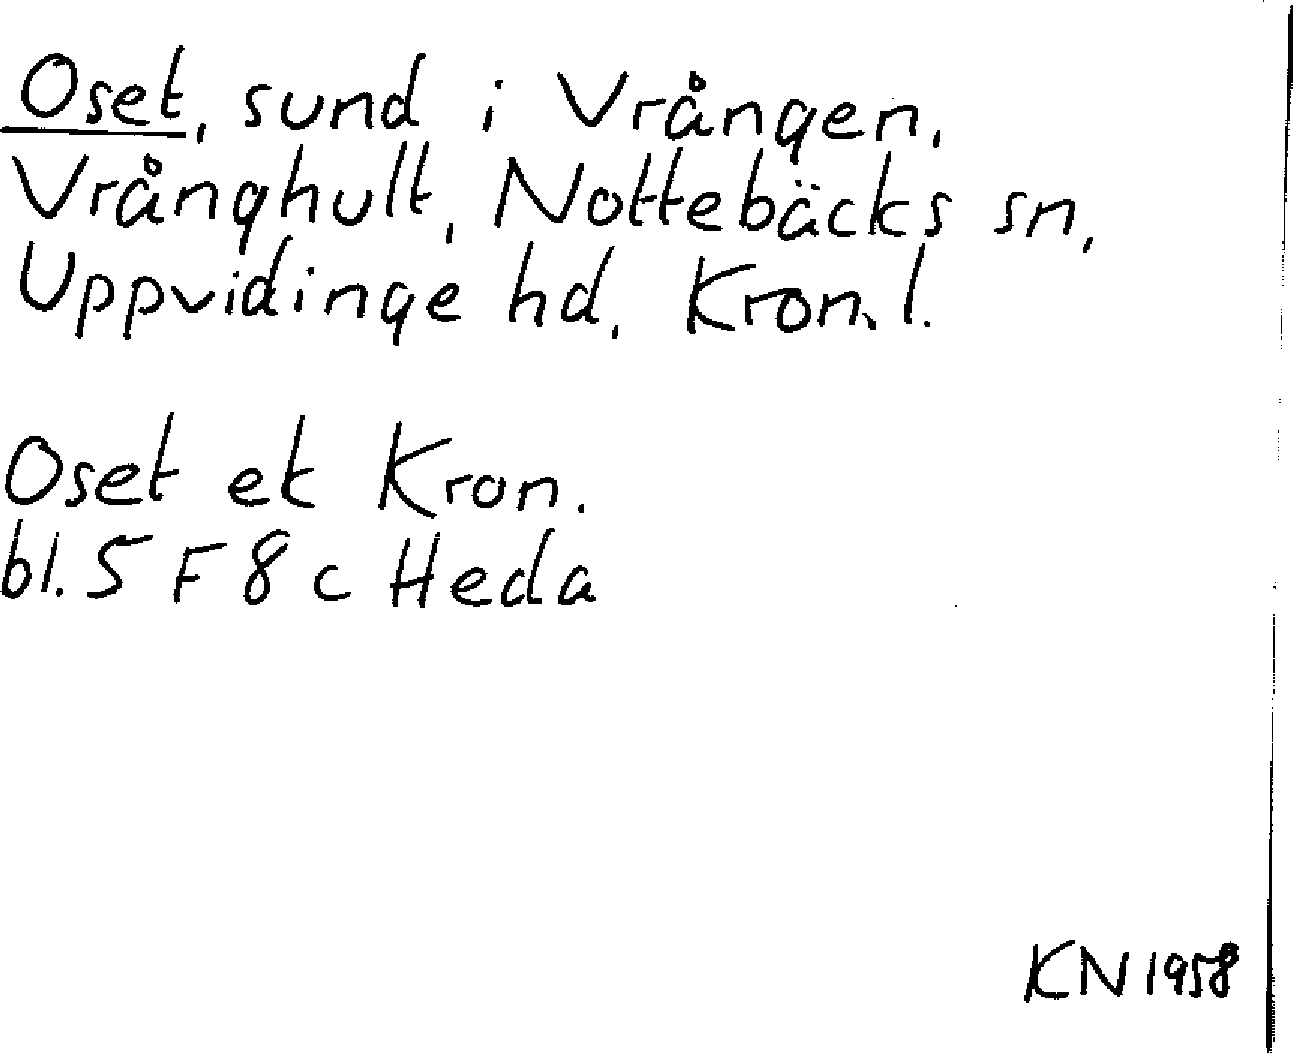 Oset, sund i Vrången,
Vrånghult, Nottebäcks sn,
Uppvidinge hd, Kron.l.
Oset ek Kron.
bl. 5 F 8 c Heda
KN 1958